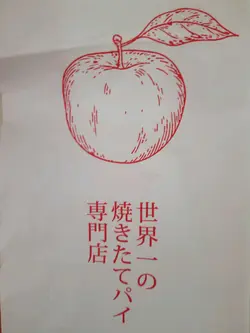 世界一の
焼きたてパイ
専門店